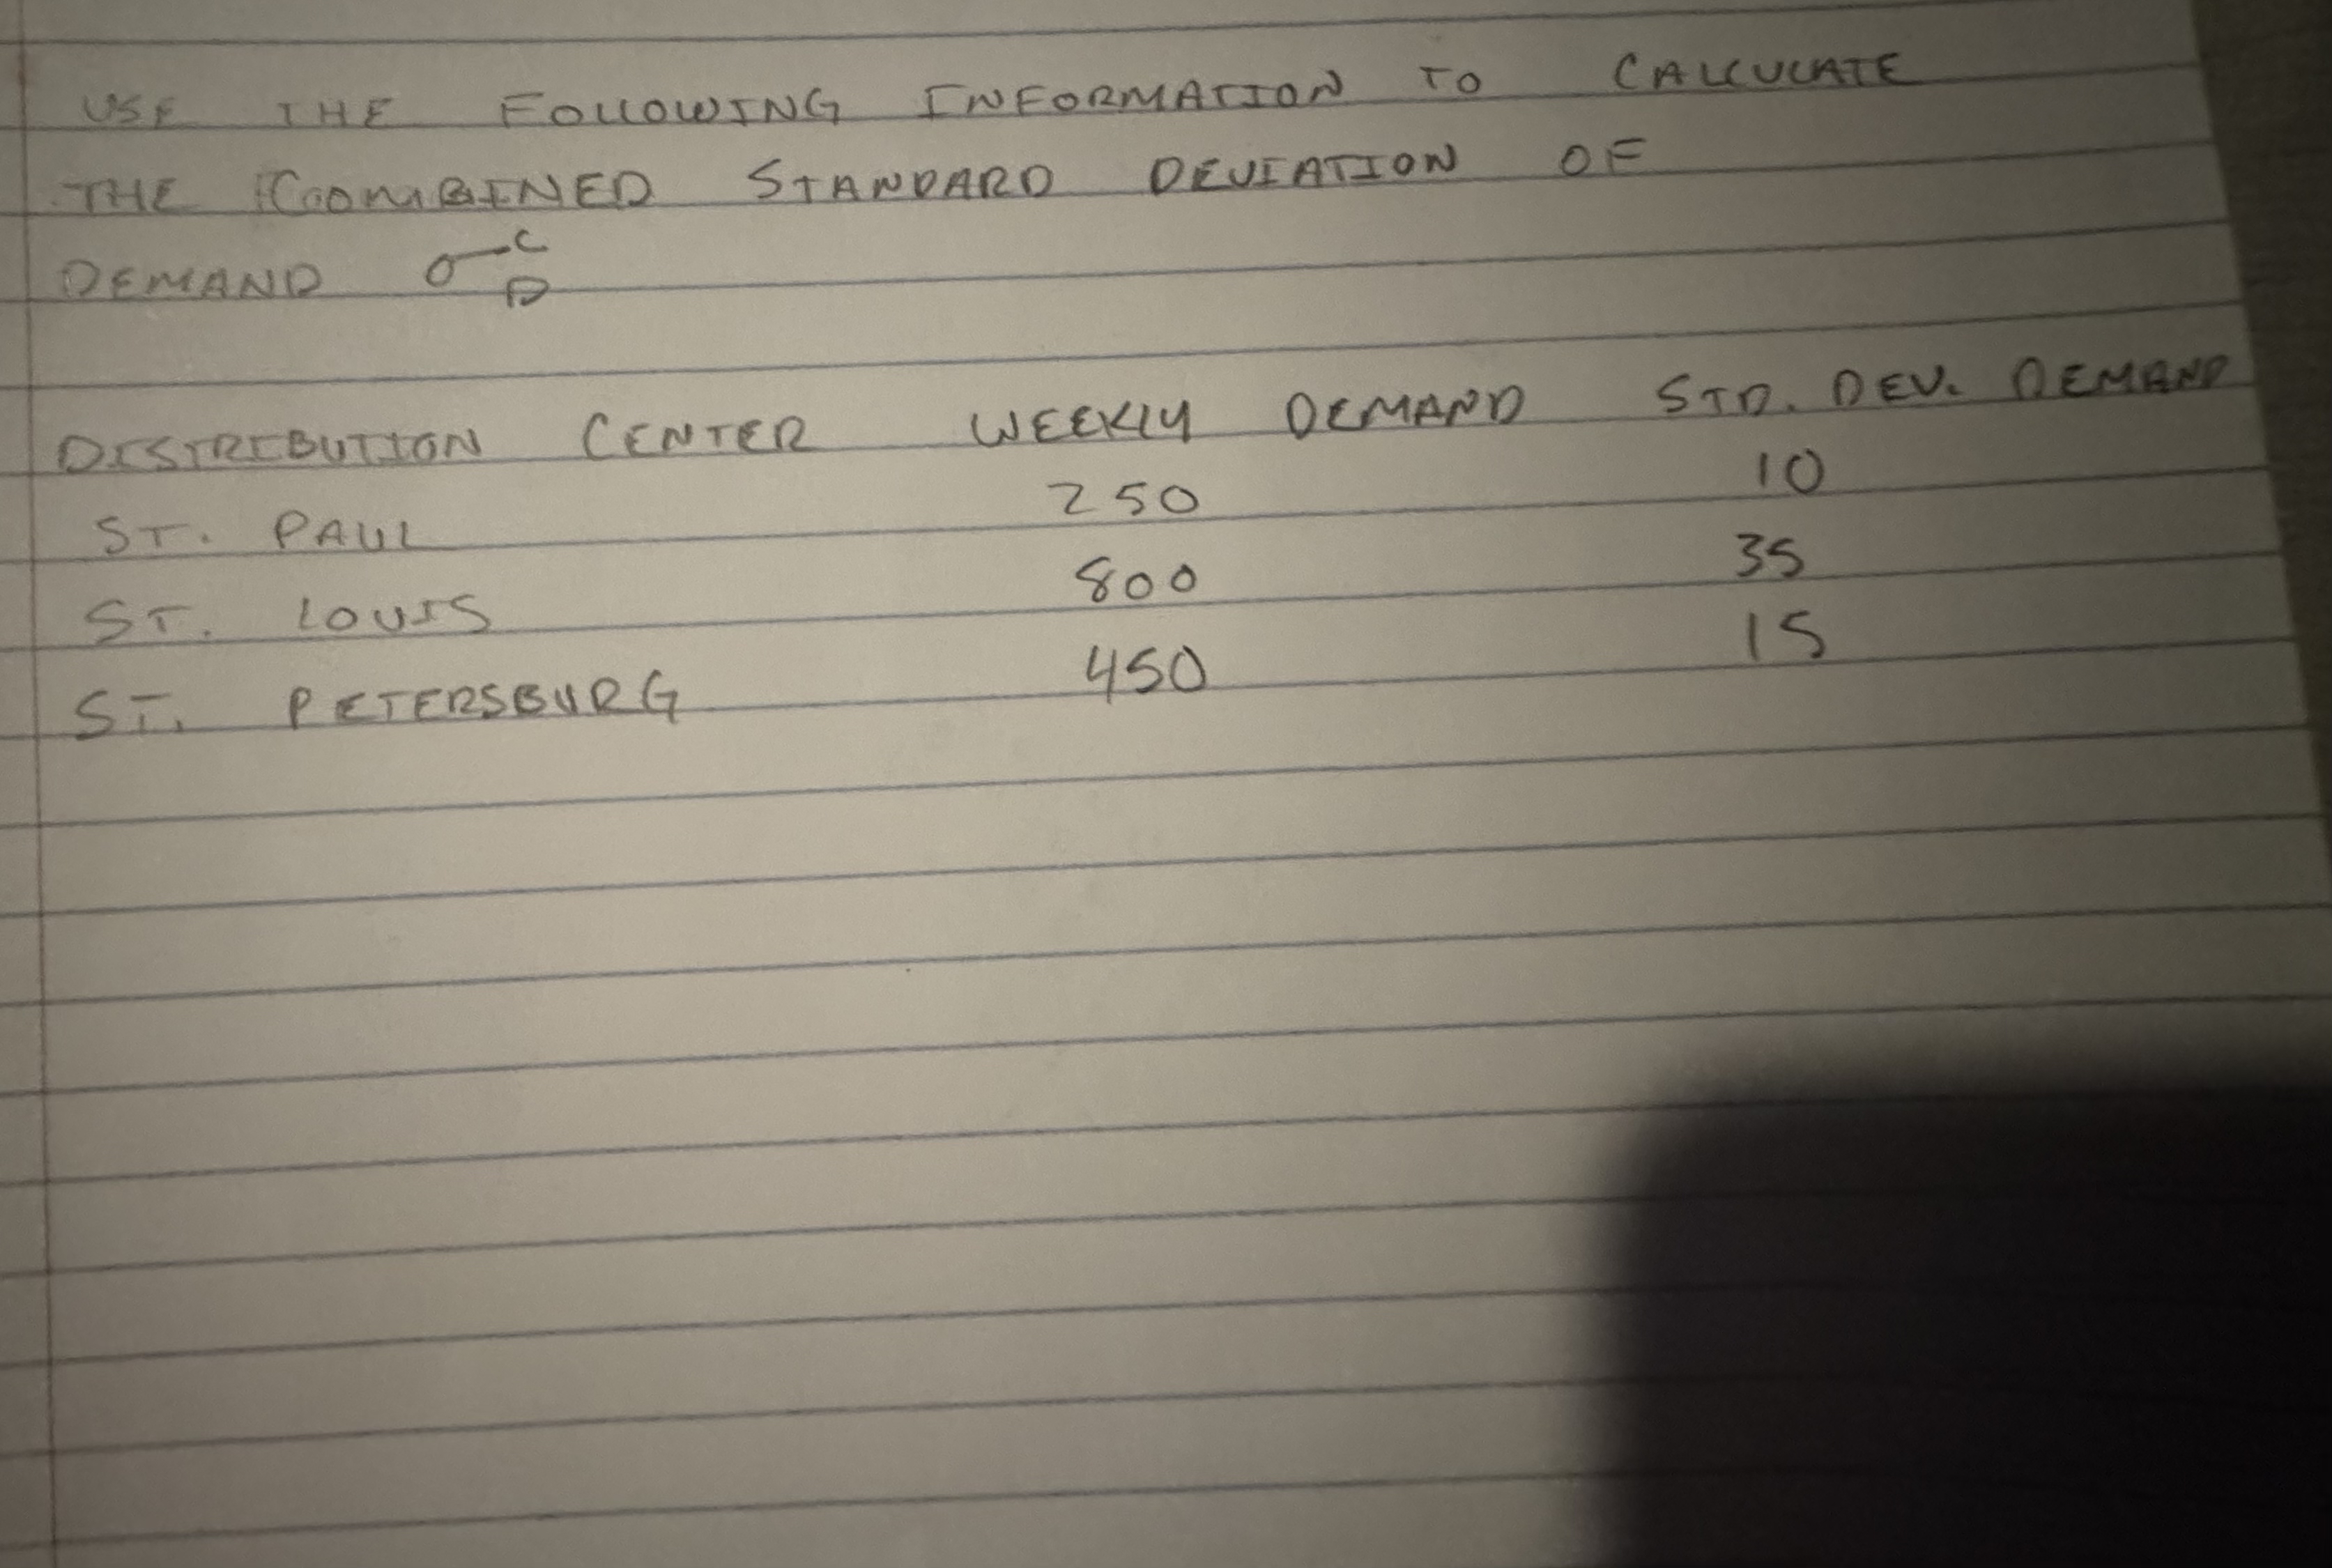 USE THE FOLLOWING INFORMATION TO CALCULATE
THE COMBINED STANDARD DEVIATION OF
DEMAND σ C D
DISTRIBUTION CENTER WEEKLY DEMAND STD. DEV. DEMAND
ST. PAUL 250 10
ST. LOUIS 800 35
ST. PETERSBURG 450 15